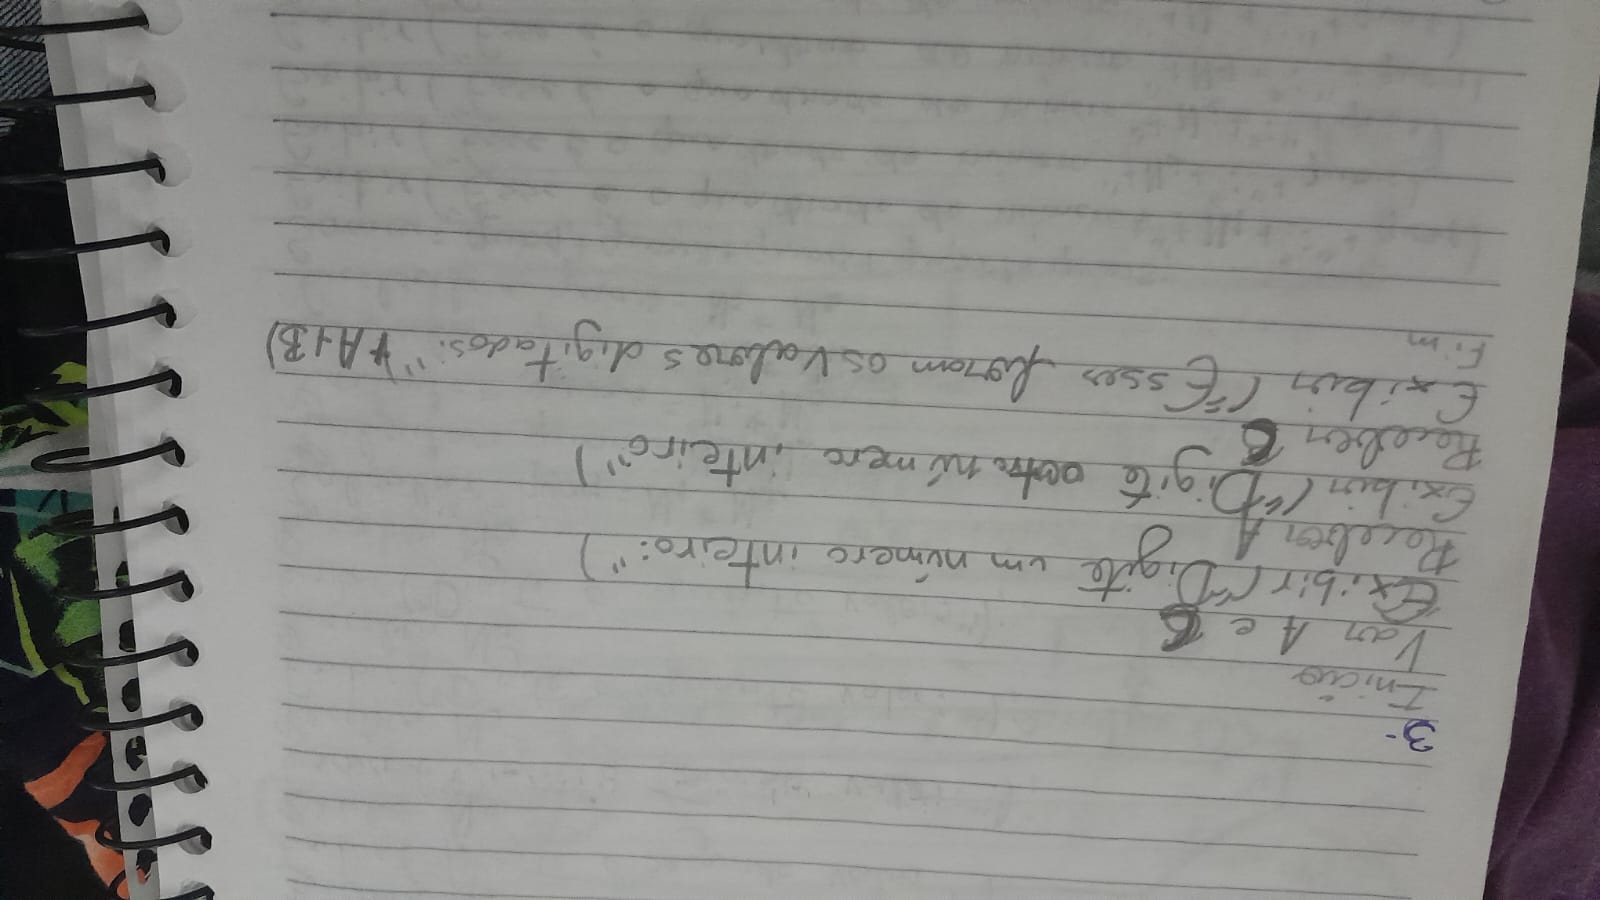 3-
Início
Var A e B
Exibir ("Digite um número inteiro:")
Receber A
Exibir ("Digite outro número inteiro")
Receber B
Exibir ("Esses foram os valores digitados:" + A + B)
Fim